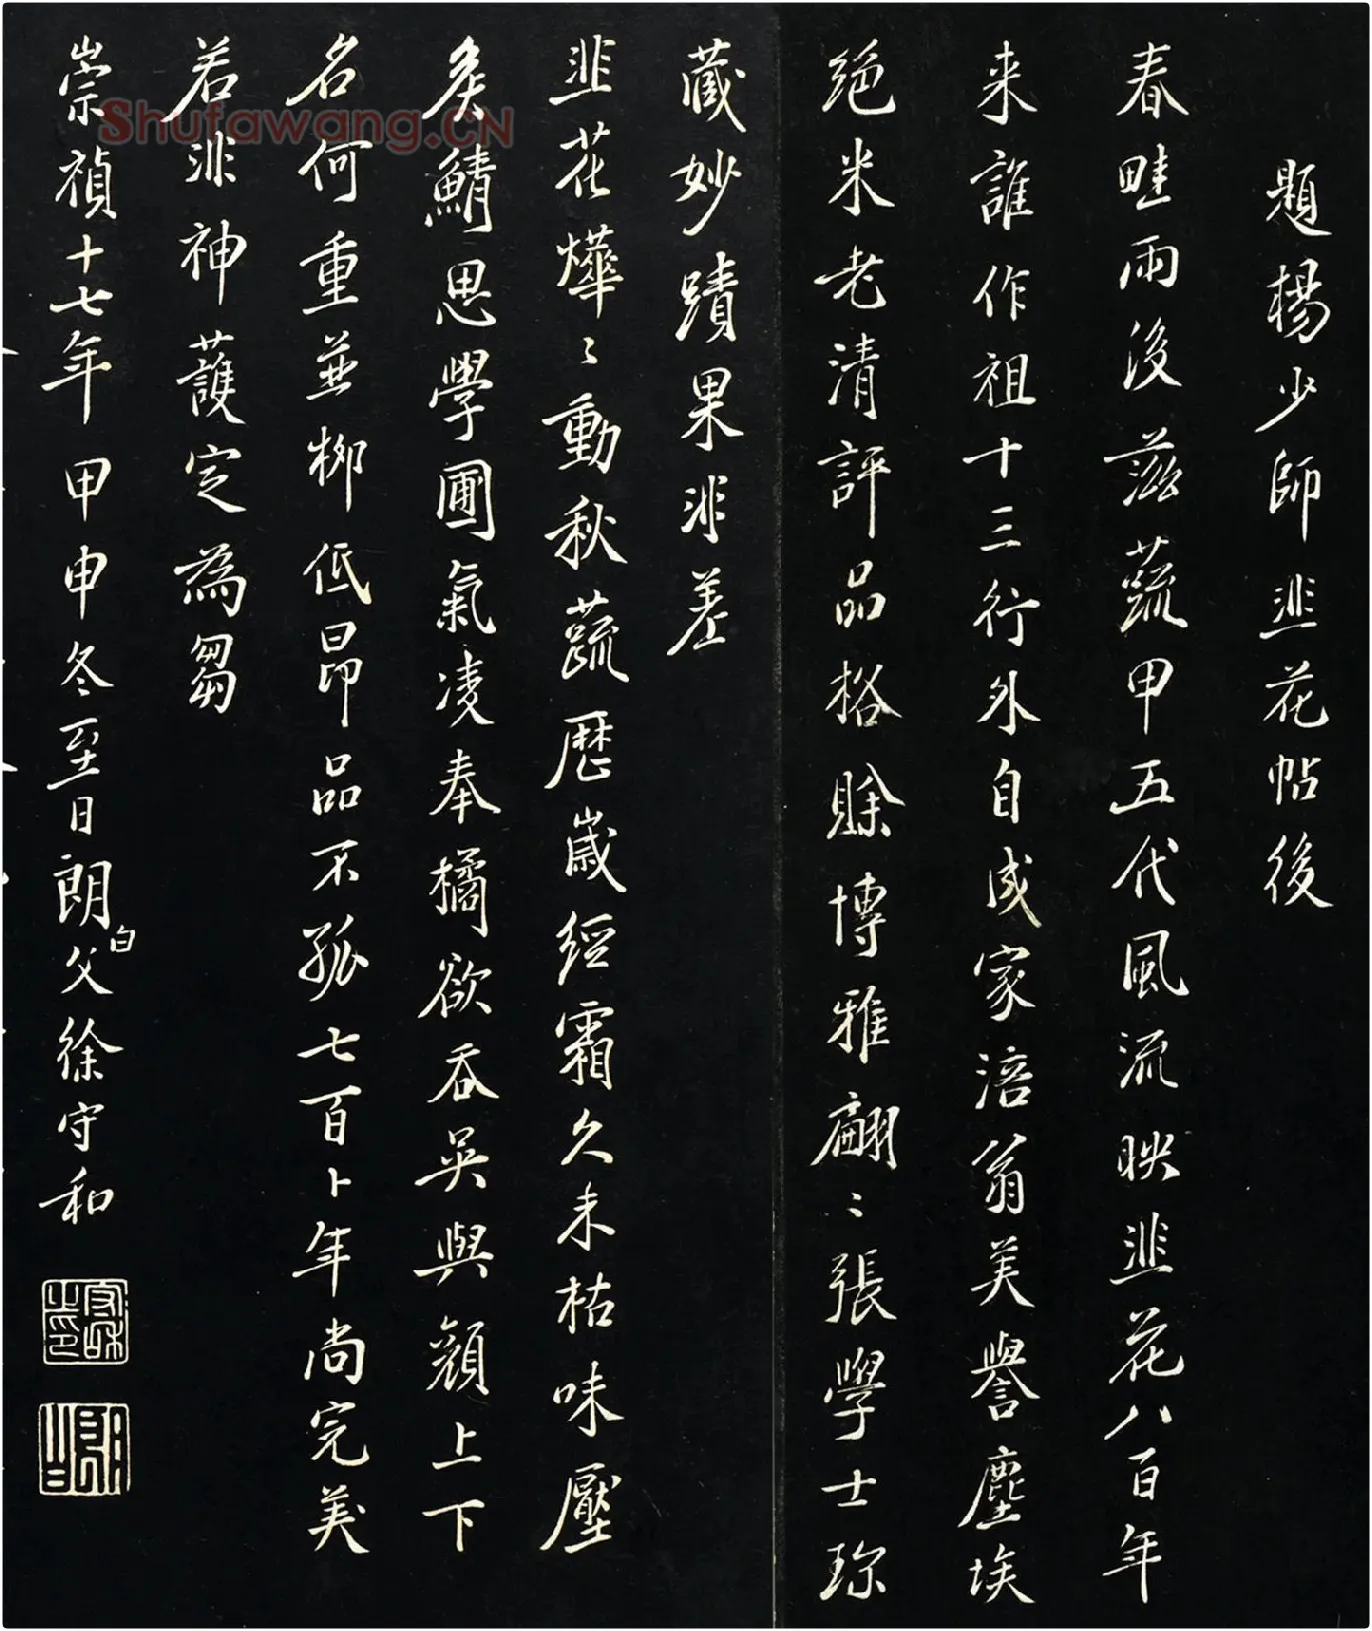 題楊少師韭花帖後
春畦雨後滋蔬甲五代風流映韭花八百年
来誰作祖十三行外自成家涪翁美譽塵埃
絶米老清評品格賒博雅翩〻張學士珎
藏妙蹟果非差
韭花燁〻動秋蔬歴歲經霜久未枯味壓
矦鯖思學圃氣凌奉橘欲吞吳與顔上下
名何重並栁低昂品不孤七百卜年尚完美
若非神護定為芻
崇禎十七年甲申冬至日朗白父徐守和
守和之印
Shufawang.CN